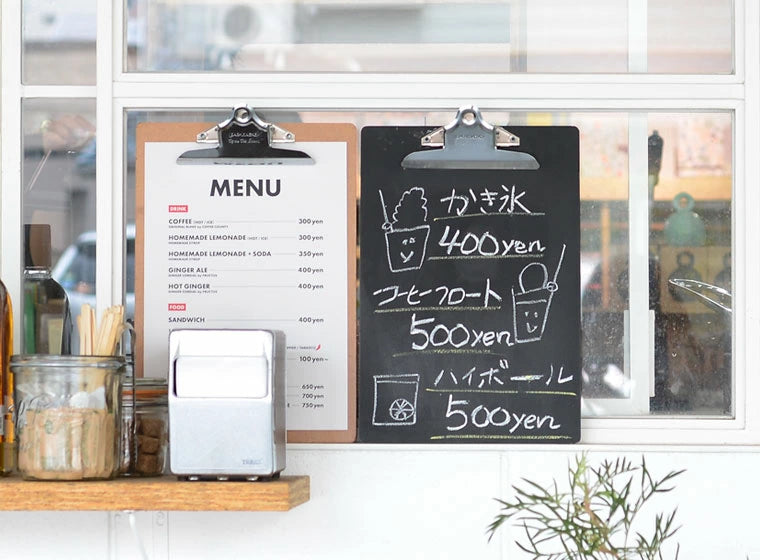 MENU
DRINK
COFFEE (HOT / ICE) 300yen
HOMEMADE LEMONADE (HOT / ICE) 300yen
HOMEMADE SYRUP
HOMEMADE LEMONADE + SODA 350yen
HOMEMADE SYRUP
GINGER ALE 400yen
HOT GINGER 400yen
FOOD
SANDWICH 400yen
100yen~
650yen
700yen
750yen
かき氷
400yen
コーヒーフロート
500yen
ハイボール
500yen